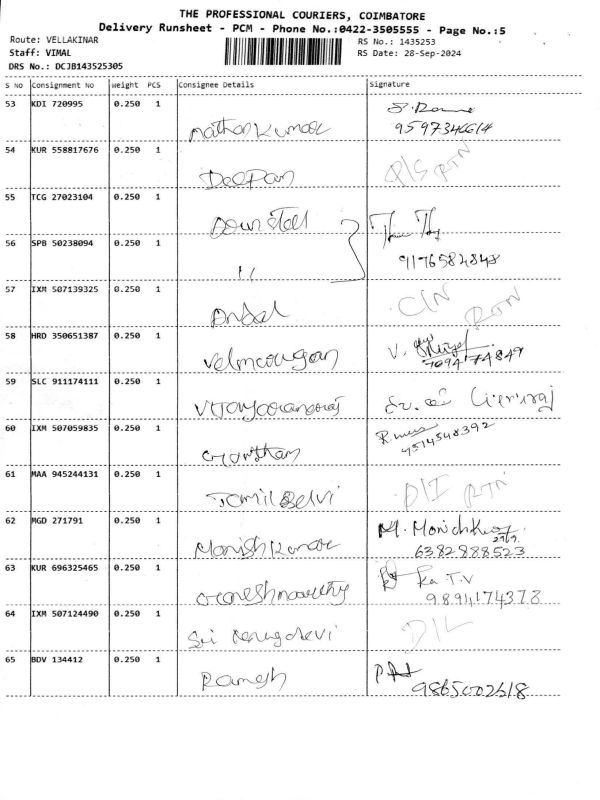 THE PROFESSIONAL COURIERS, COIMBATORE
Delivery Runsheet - PCM - Phone No.:0422-3505555 - Page No.:5
Route: VELLAKINAR RS No.: 1435253
Staff: VIMAL RS Date: 28-Sep-2024
DRS No.: DCJB143525305
S No Consignment No Weight PCS Consignee Details Signature
53 KDI 720995 0.250 1
Mathan Kumar 9597346614
54 KUR 558817676 0.250 1
Deepan RTN
55 TCG 27023104 0.250 1
56 SPB 50238094 0.250 1
" 9176584848
57 IXM 507139325 0.250 1
Andal RTN
58 HRD 350651387 0.250 1
Velmurugan V. 7094174849
59 SLC 911174111 0.250 1
60 IXM 507059835 0.250 1
Gowtham 4514548392
61 MAA 945244131 0.250 1
Tamil Selvi D/I RTN
62 MGD 271791 0.250 1
Manish Kumar M.
6382888523
63 KUR 696325465 0.250 1
Ganeshmoorthy Ka T.V
9894174378
64 IXM 507124490 0.250 1
Sri D/L
65 BDV 134412 0.250 1
Ramesh
9865002618